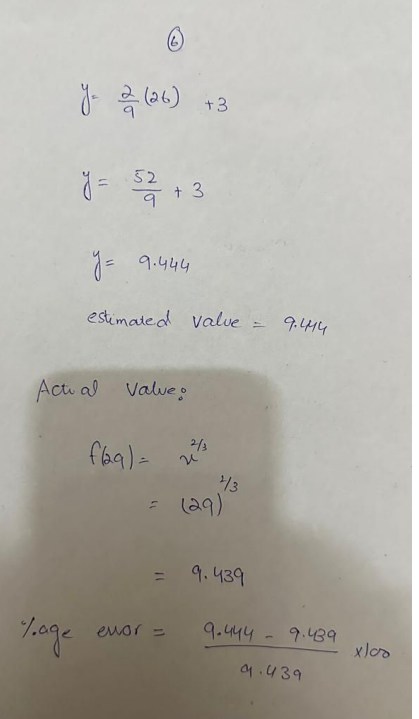 6
y = 2/9 (26) + 3
y = 52/9 + 3
y = 9.444
estimated value = 9.444
Actual Value:
f(29) = x^2/3
= (29)^2/3
= 9.439
%age error = (9.444 - 9.439)/9.439 x100